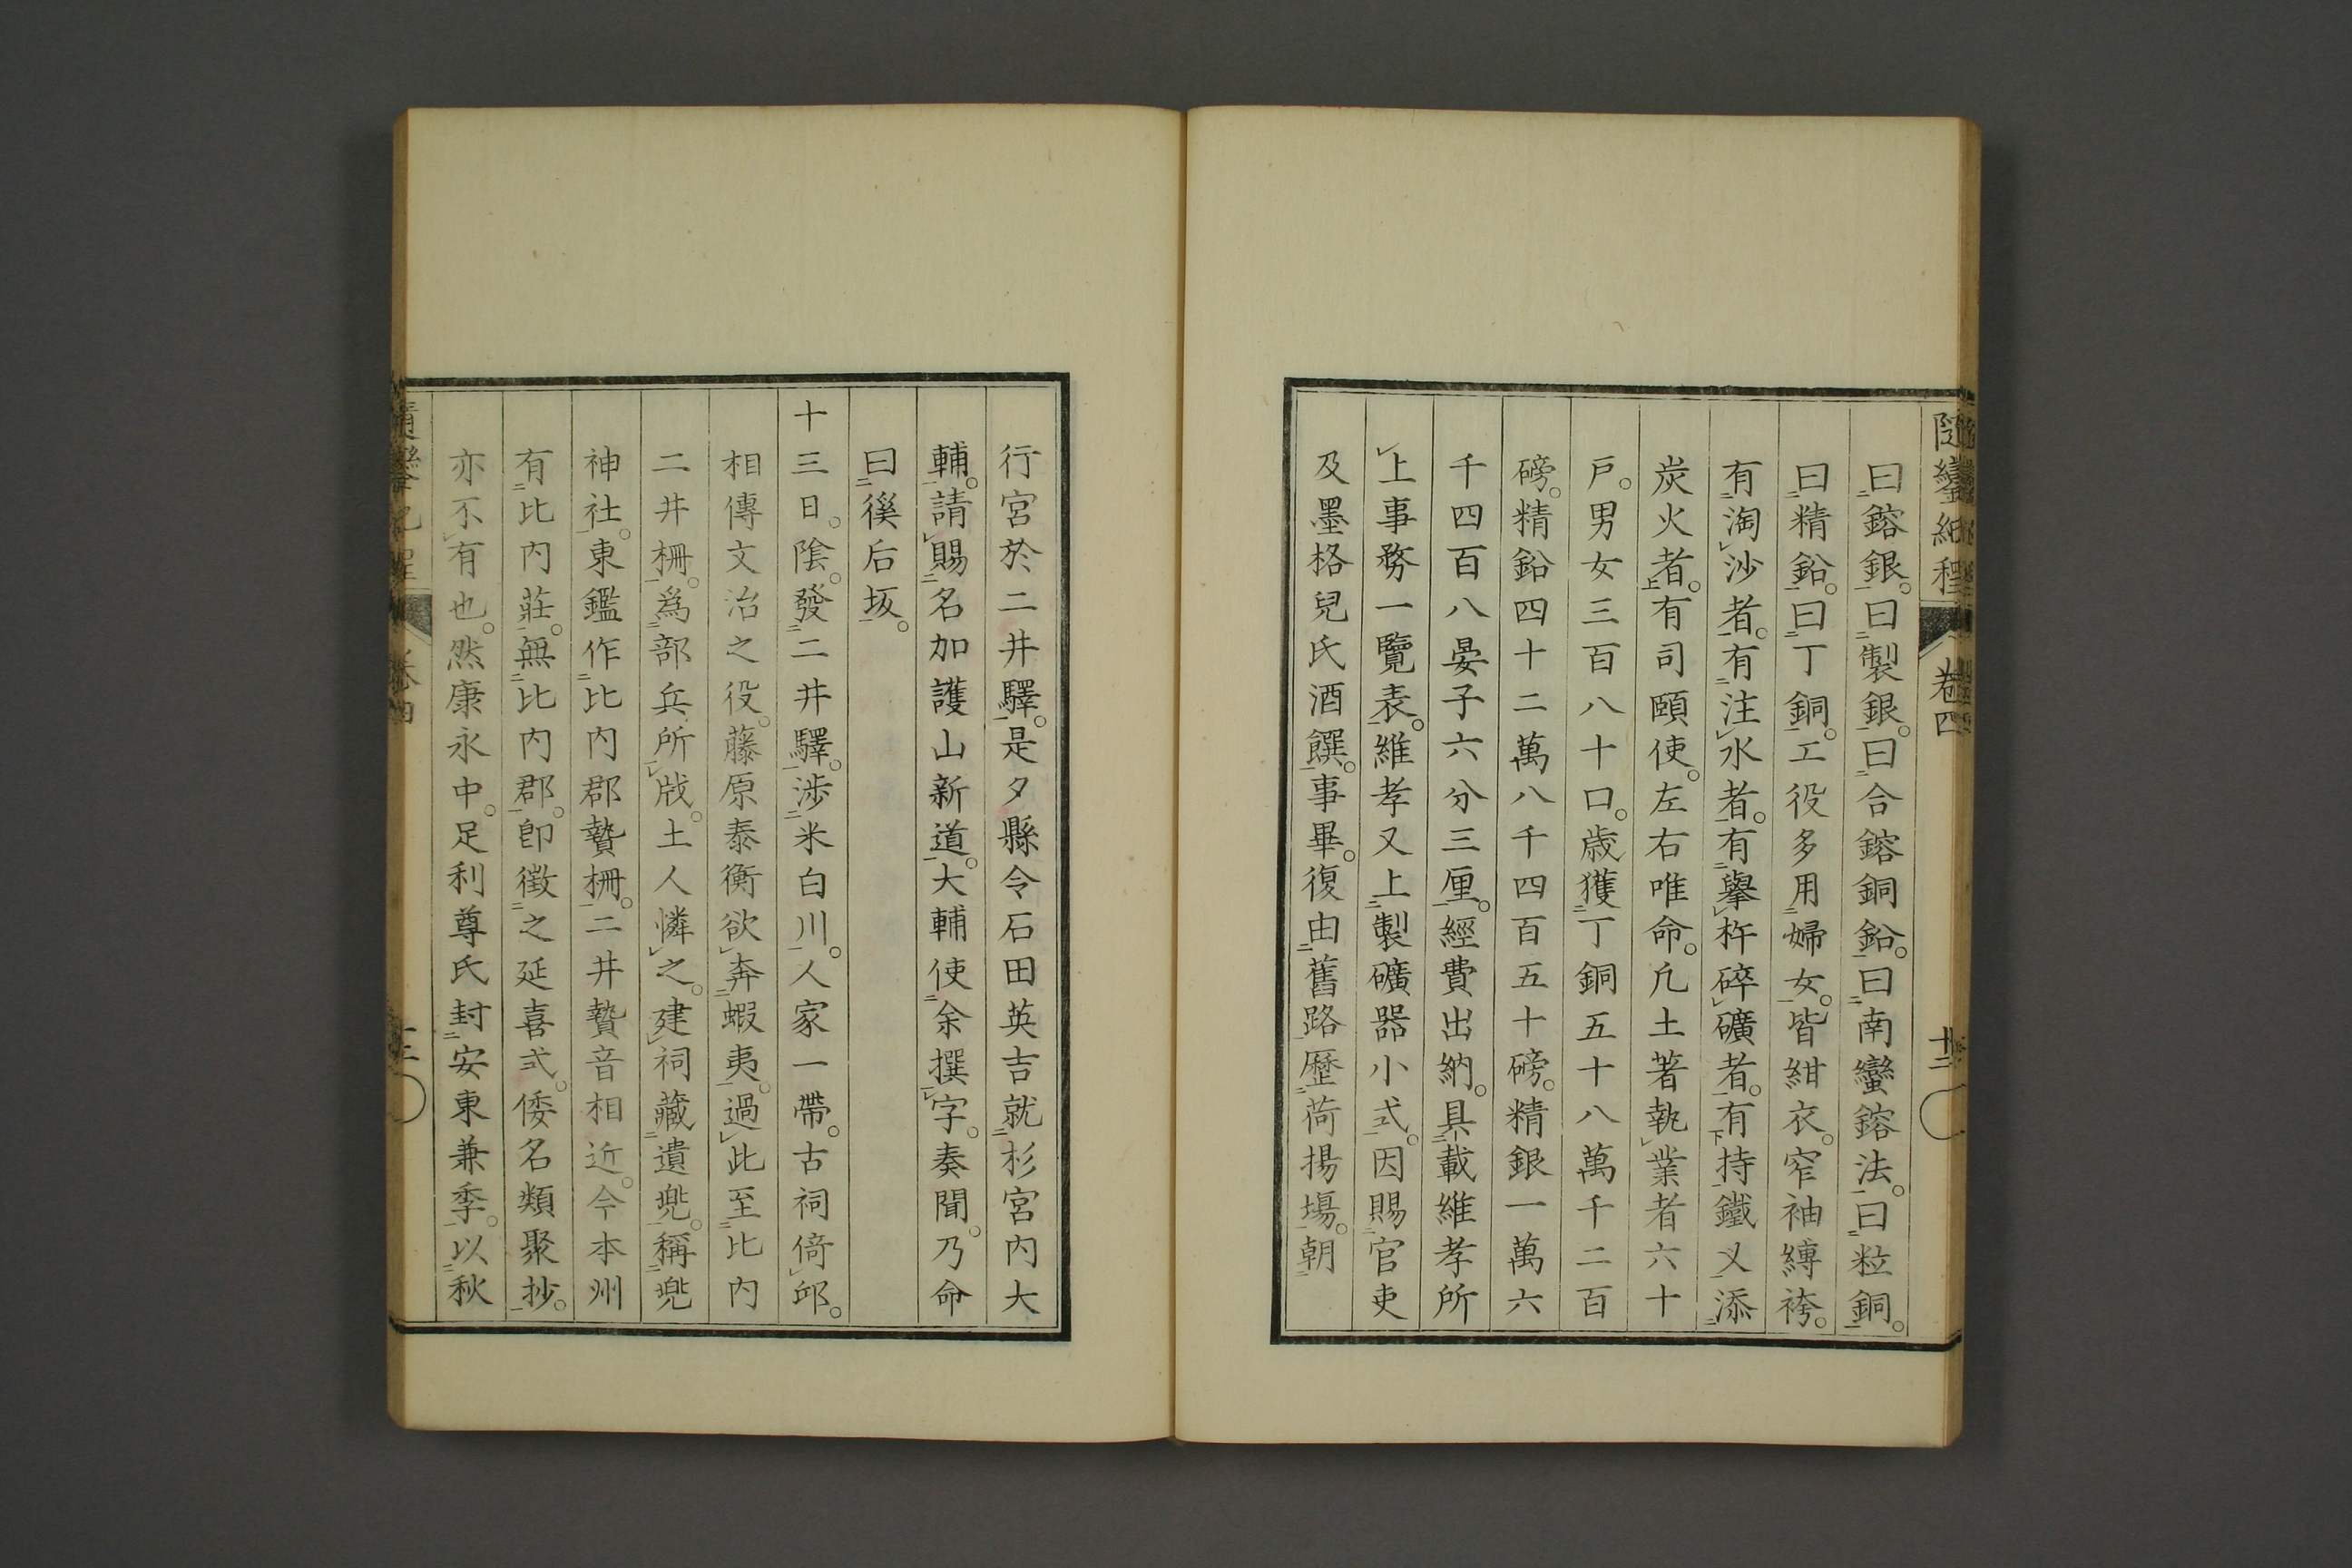 隨鑾紀程 卷四 十二
曰鎔銀。曰製銀。曰合鎔銅鉛。曰南蠻鎔法。曰粒銅。
曰精鉛。曰丁銅。工役多用婦女。皆紺衣。窄袖縛袴。
有淘沙者。有注水者。有擧杵碎礦者。有持鐵叉添
炭火者。有司頤使。左右唯命。凢土著執業者六十
戶。男女三百八十口。歳獲丁銅五十八萬千二百
磅。精鉛四十二萬八千四百五十磅。精銀一萬六
千四百八晏子六分三厘。經費出納。具載維孝所
上事務一覽表。維孝又上製礦器小式。因賜官吏
及墨格兒氏酒饌。事畢。復由舊路歷荷揚場。朝
行宮於二井驛。是夕縣令石田英吉就杉宮内大
輔。請賜名加護山新道。大輔使余撰字。奏聞。乃命
曰徯后坂。
十三日。陰。發二井驛。涉米白川。人家一帶。古祠倚邱。
相傳文治之役。藤原泰衡欲奔蝦夷。過此至比内
二井柵。爲部兵所戕。土人憐之。建祠藏遺兠。稱兠
神社。東鑑作比内郡贄柵。二井贄音相近。今本州
有比内莊。無比内郡。卽徵之延喜式。倭名類聚抄。
亦不有也。然康永中。足利尊氏封安東兼季。以秋